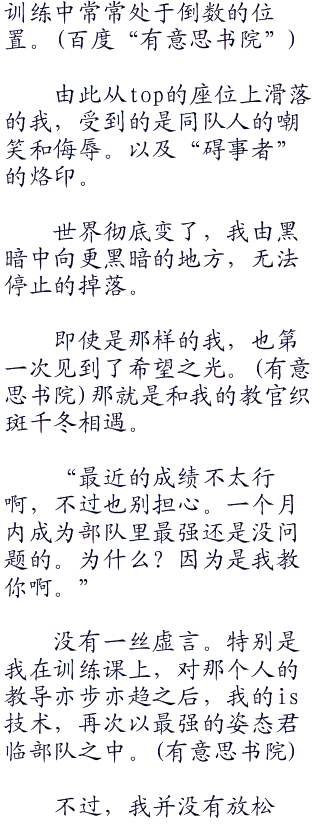 训练中常常处于倒数的位
置。(百度“有意思书院”)
由此从top的座位上滑落
的我，受到的是同队人的嘲
笑和侮辱。以及“碍事者”
的烙印。
世界彻底变了，我由黑
暗中向更黑暗的地方，无法
停止的掉落。
即使是那样的我，也第
一次见到了希望之光。(有意
思书院)那就是和我的教官织
斑千冬相遇。
“最近的成绩不太行
啊，不过也别担心。一个月
内成为部队里最强还是没问
题的。为什么？因为是我教
你啊。”
没有一丝虚言。特别是
我在训练课上，对那个人的
教导亦步亦趋之后，我的is
技术，再次以最强的姿态君
临部队之中。(有意思书院)
不过，我并没有放松